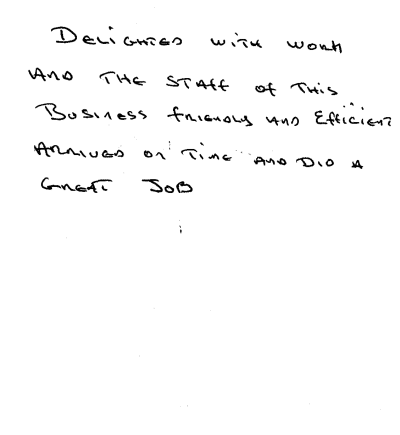 DELIGHTED WITH WORK
AND THE STAFF OF THIS
BUSINESS FRIENDLY AND EFFICIENT
ARRIVED ON TIME AND DID A
GREAT JOB